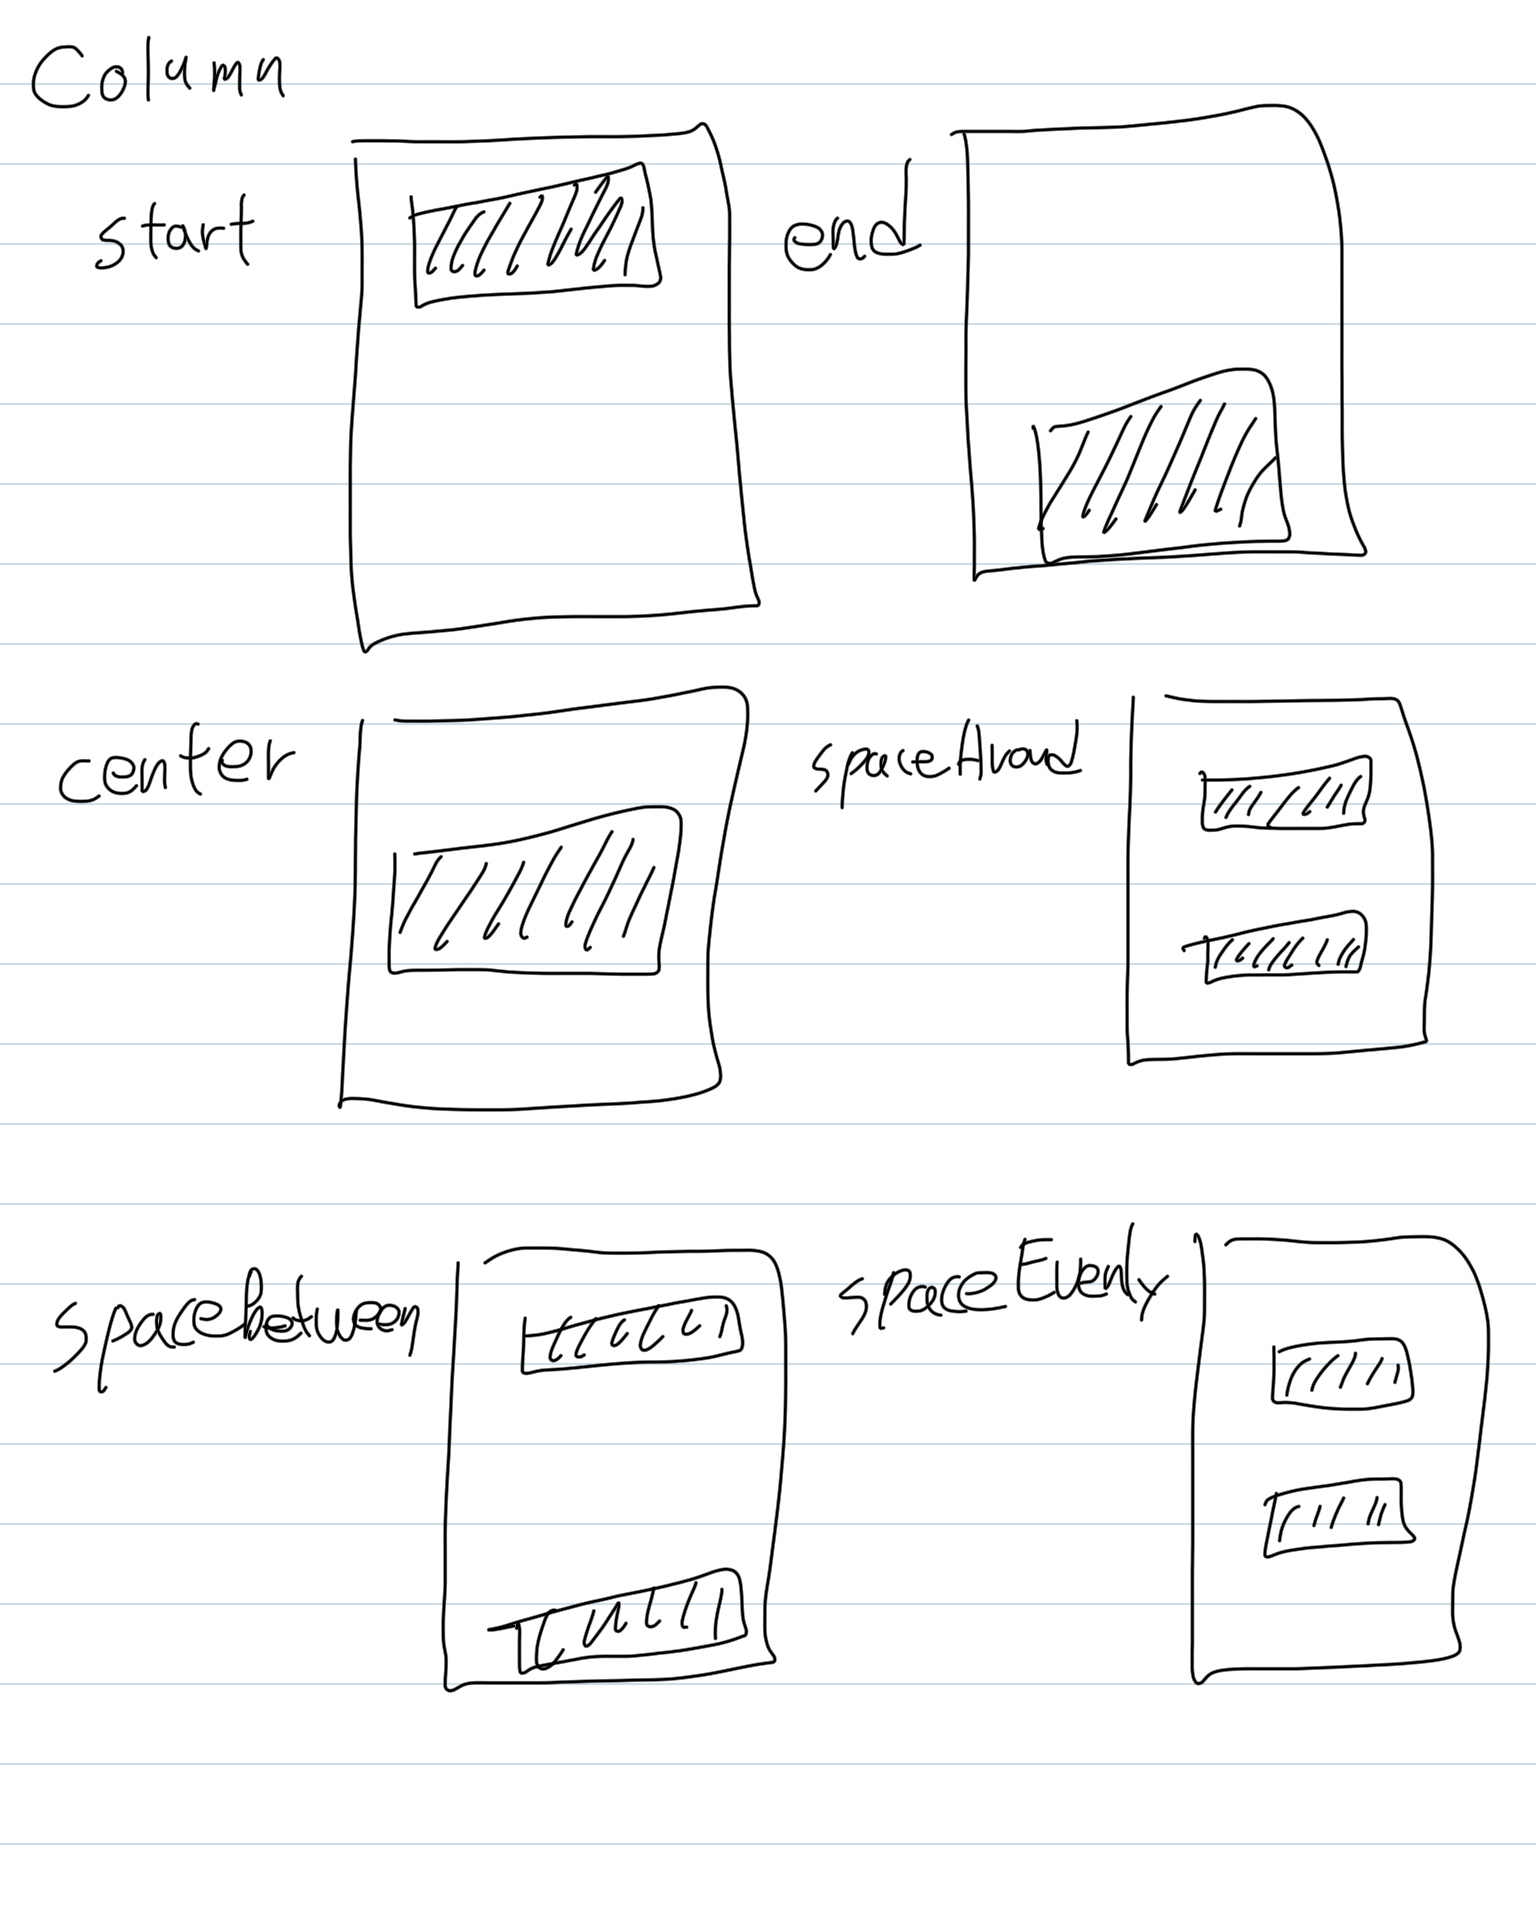 Column
start
end
center
spaceAround
spacebetween
spaceEvenly